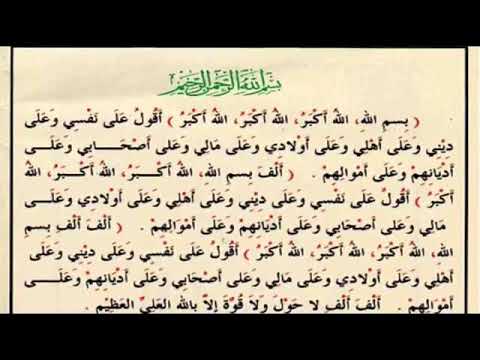 بِسْمِ اللهِ الرَّحْمٰنِ الرَّحِيْمِ
( بِسمِ اللهِ، اللهُ أَكْبَرُ، اللهُ أَكْبَرُ، اللهُ أَكْبَرُ ) أَقُولُ عَلَى نَفْسِي وَعَلَى
دِيْنِي وَعَلَى أَهْلِي وَعَلَى أَوْلَادِي وَعَلَى مَالِي وَعَلَى أَصْحَابِي وَعَلَى
أَدْيَانِهِمْ وَعَلَى أَمْوَالِهِمْ . ( أَلْفَ بِسمِ اللهِ، اللهُ أَكْبَرُ، اللهُ أَكْبَرُ، اللهُ
أَكْبَرُ ) أَقُولُ عَلَى نَفْسِي وَعَلَى دِيْنِي وَعَلَى أَهْلِي وَعَلَى أَوْلَادِي وَعَلَى
مَالِي وَعَلَى أَصْحَابِي وَعَلَى أَدْيَانِهِمْ وَعَلَى أَمْوَالِهِمْ . ( أَلْفَ أَلْفِ بِسمِ
اللهِ، اللهُ أَكْبَرُ، اللهُ أَكْبَرُ، اللهُ أَكْبَرُ ) أَقُولُ عَلَى نَفْسِي وَعَلَى دِيْنِي وَعَلَى
أَهْلِي وَعَلَى أَوْلَادِي وَعَلَى مَالِي وَعَلَى أَصْحَابِي وَعَلَى أَدْيَانِهِمْ وَعَلَى
أَمْوَالِهِمْ . أَلْفَ أَلْفِ لاَ حَوْلَ وَلاَ قُوَّةَ إِلاَّ بِاللهِ الْعَلِيِّ الْعَظِيْمِ .